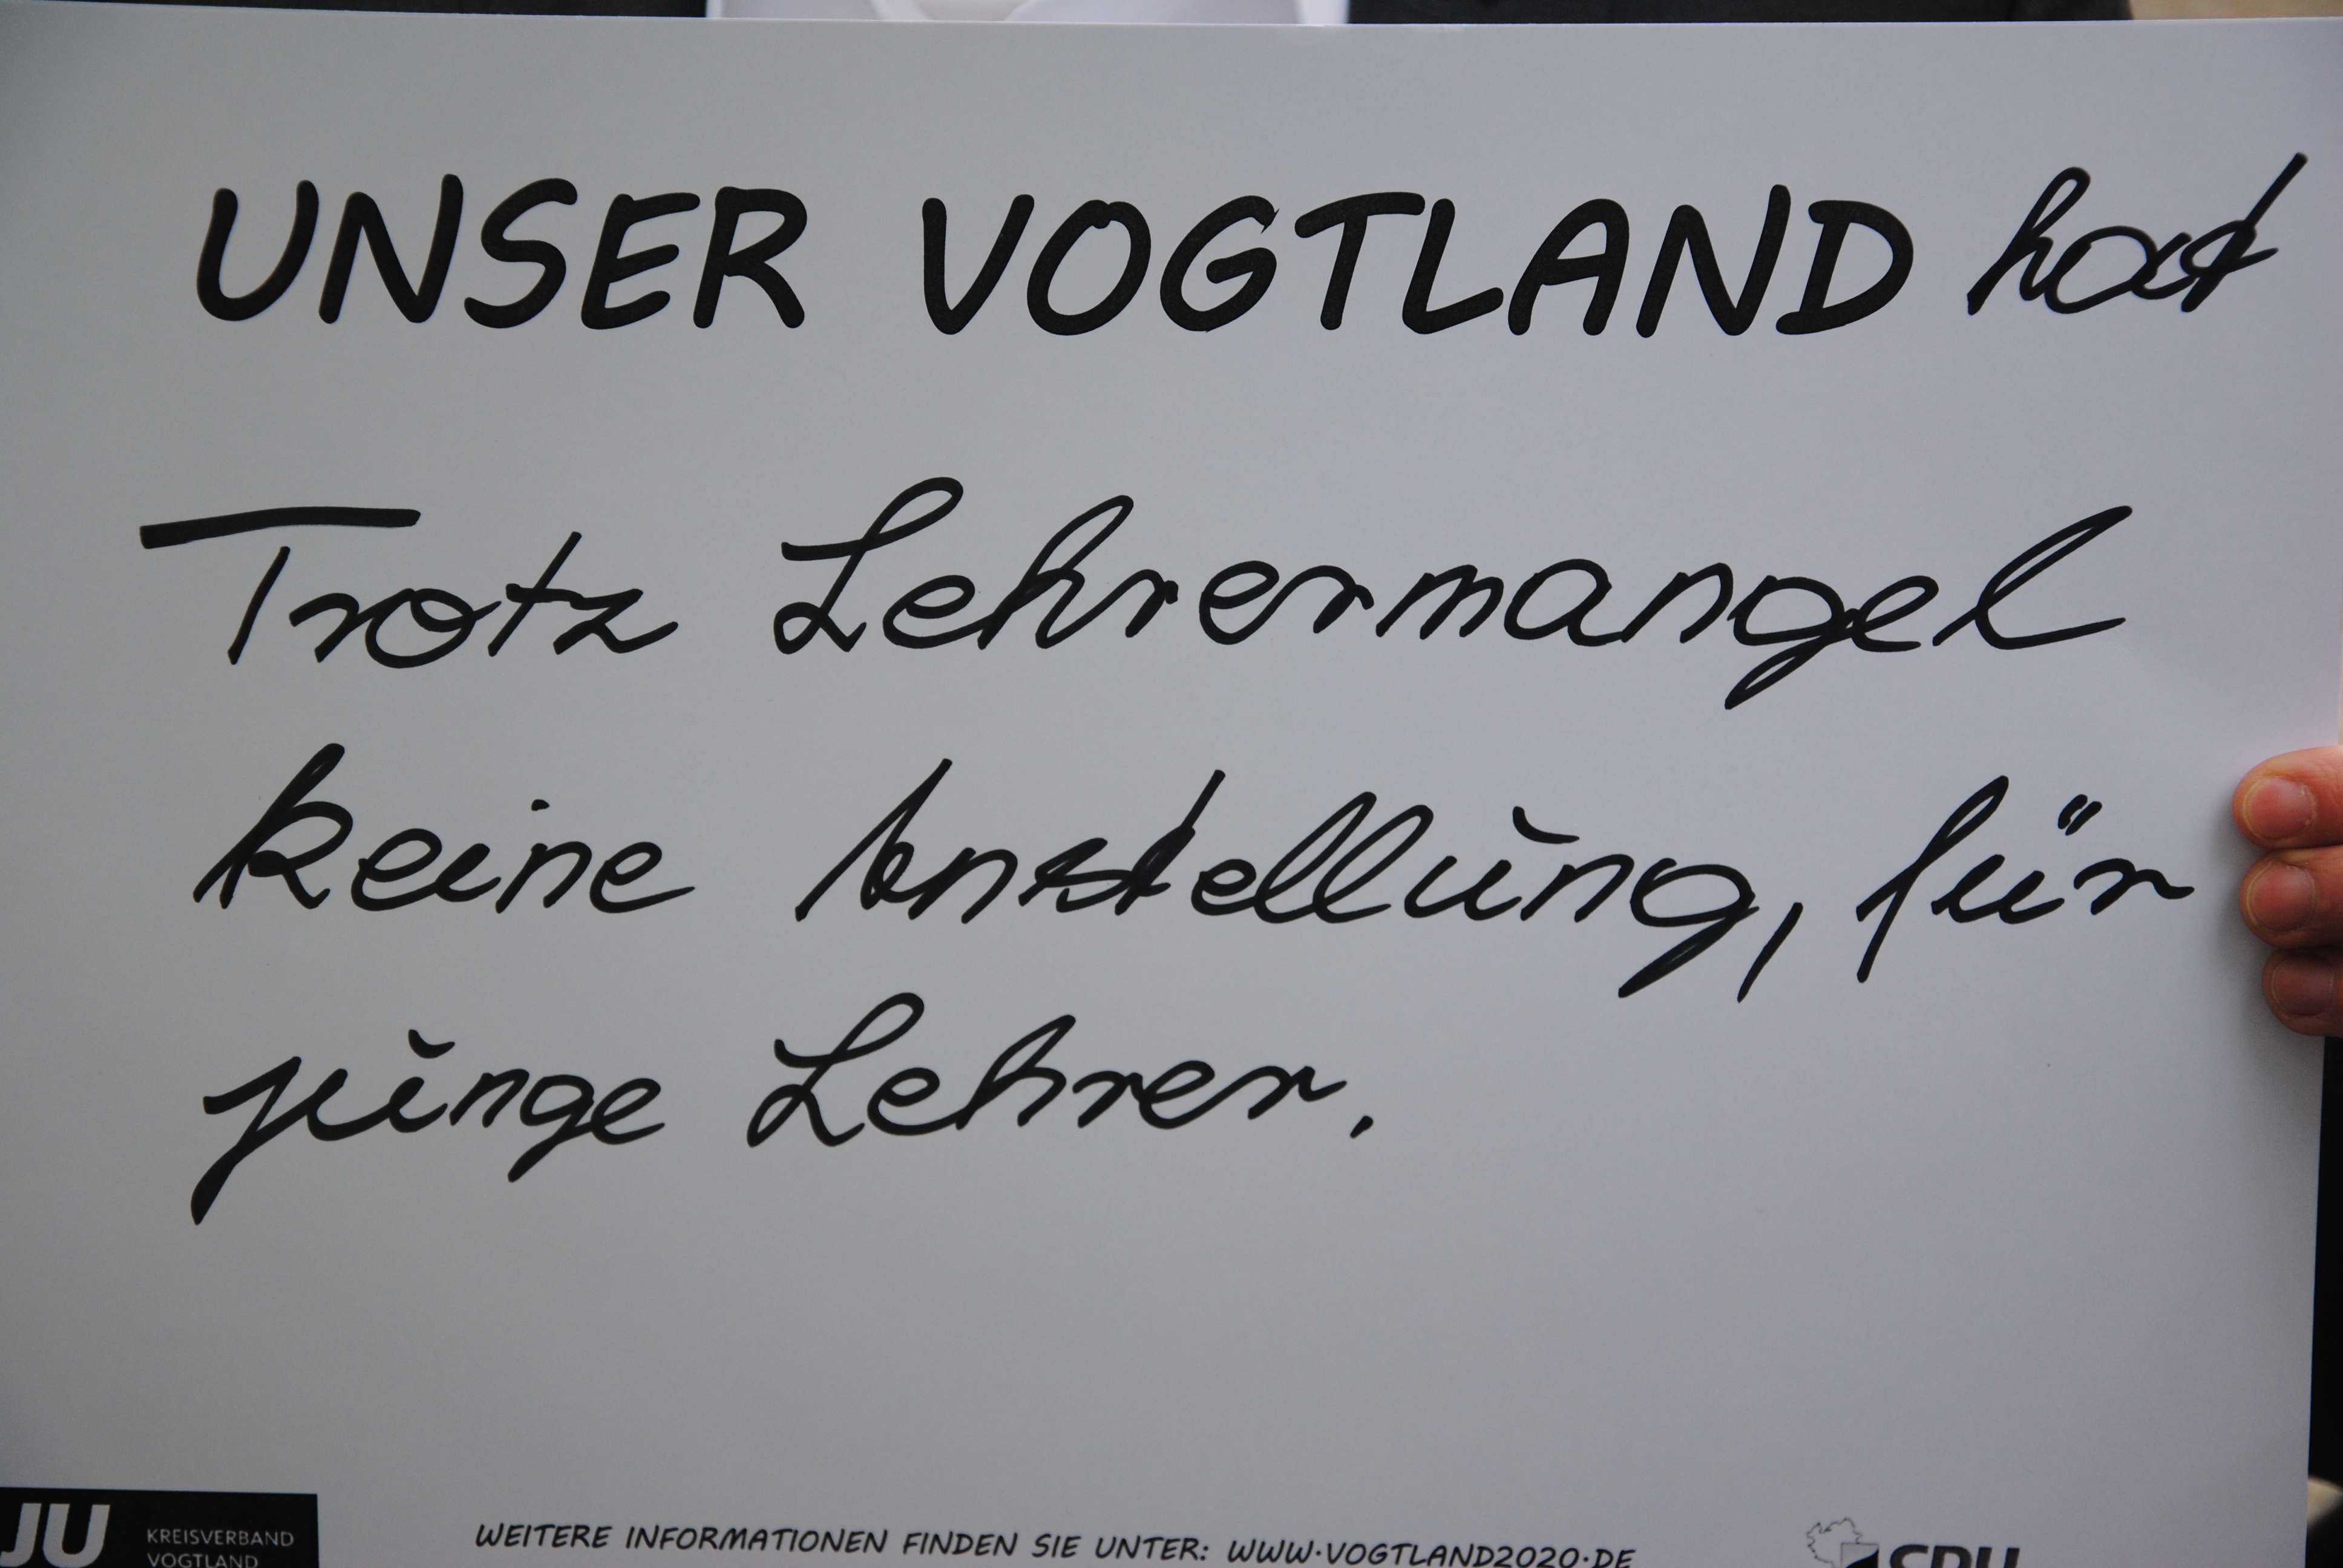 UNSER VOGTLAND hat
Trotz Lehrermangel
keine Anstellung, für
junge Lehrer.
JU KREISVERBAND
VOGTLAND
WEITERE INFORMATIONEN FINDEN SIE UNTER: WWW.VOGTLAND2020.DE
CDU